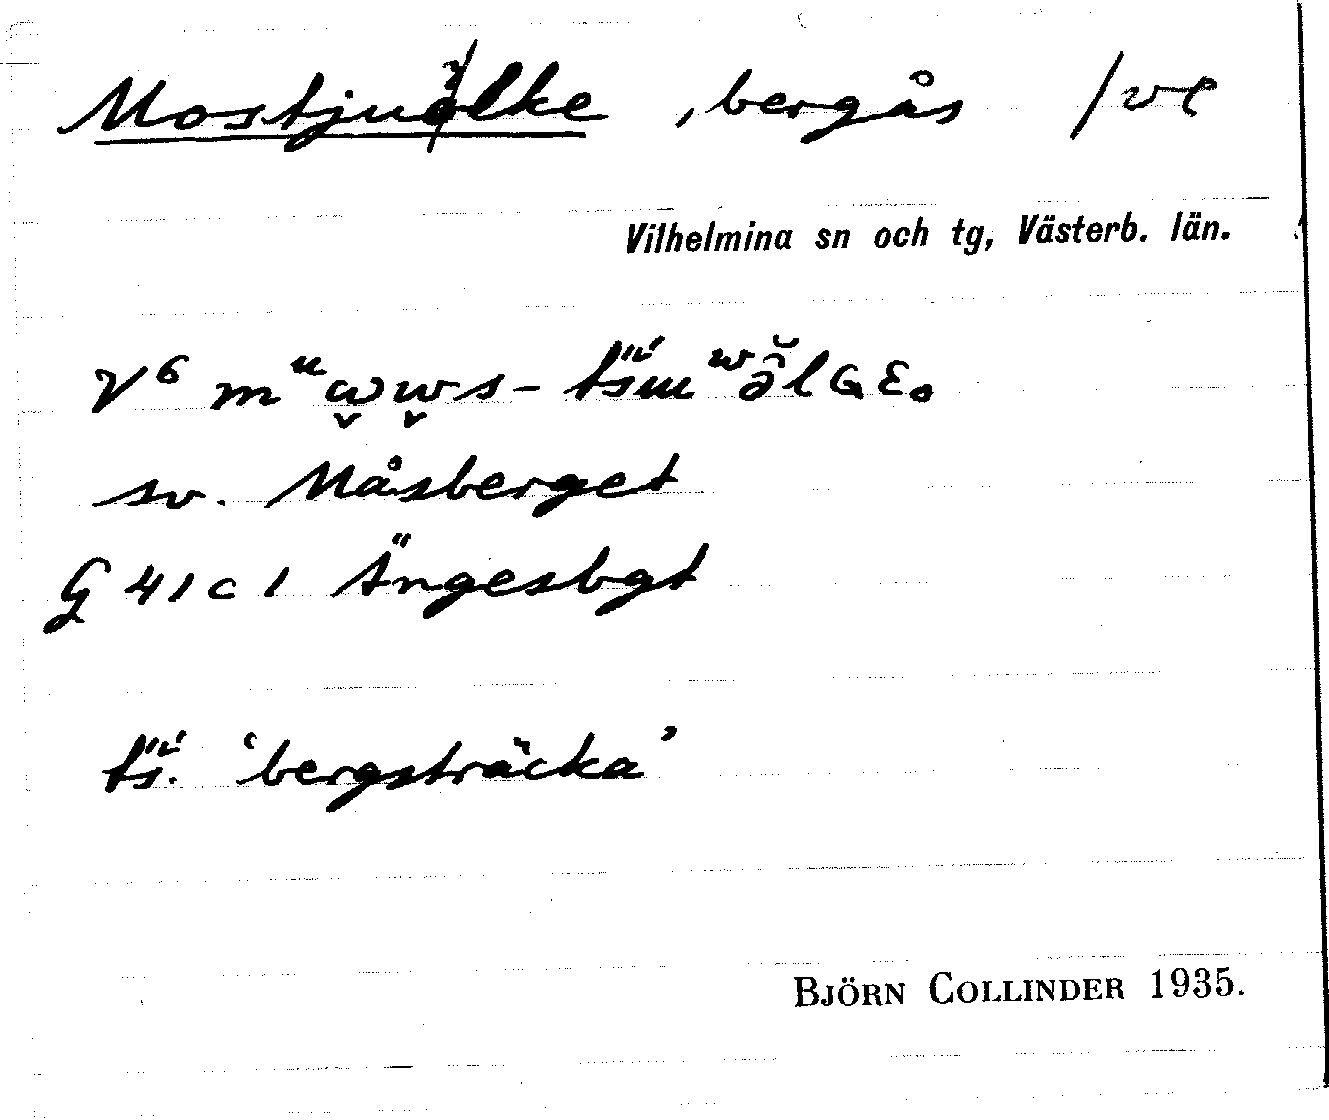 Mostjuolke, bergås /vl
Vilhelmina sn och tg, Västerb. län.
V⁶ mᵘω̬w̬s-
sv. Måsberget
G 41 c 1 Ängesbgt
'bergsträcka'
BJÖRN COLLINDER 1935.